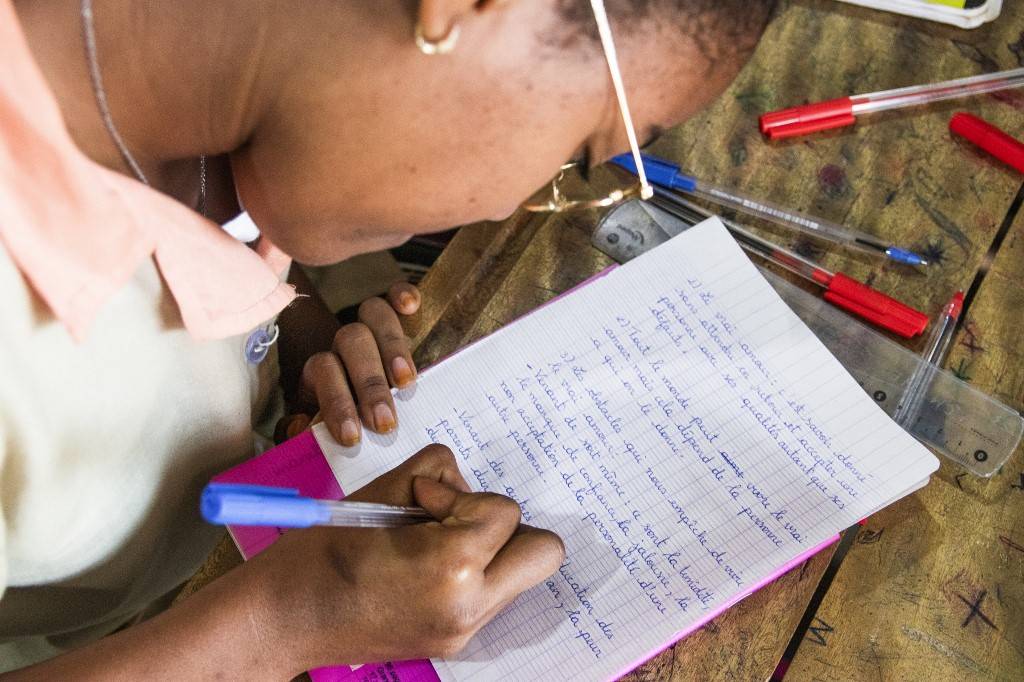 1) Le vrai amour : est savoir donné
sans attendre en retour et accepter une
personne avec ses qualités autant que ses
défauts.
2) Tout le monde peut vivre le vrai
amour mais cela dépend de la personne
a qui on le donne.
3) Les obstacles qui nous empêche de vivre
le vrai amour.
- Venant de soit même : ce sont la timidité,
le manque de confiance, la jalousie, la
non acceptation de la personalité d'une
autre personne.
- Venant des autres
parents du
de
M